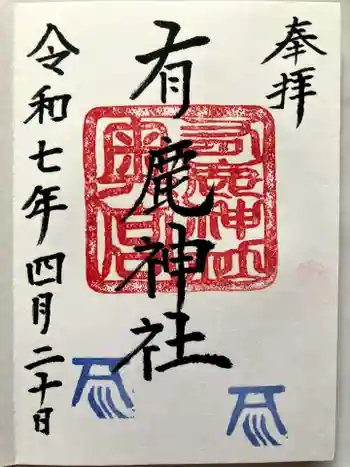 奉拝
有鹿神社
令和七年四月二十日